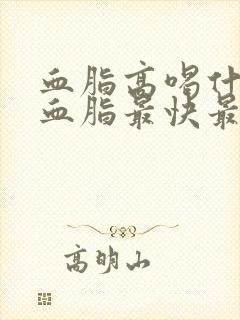 血脂高喝什
血脂最快最
高明山